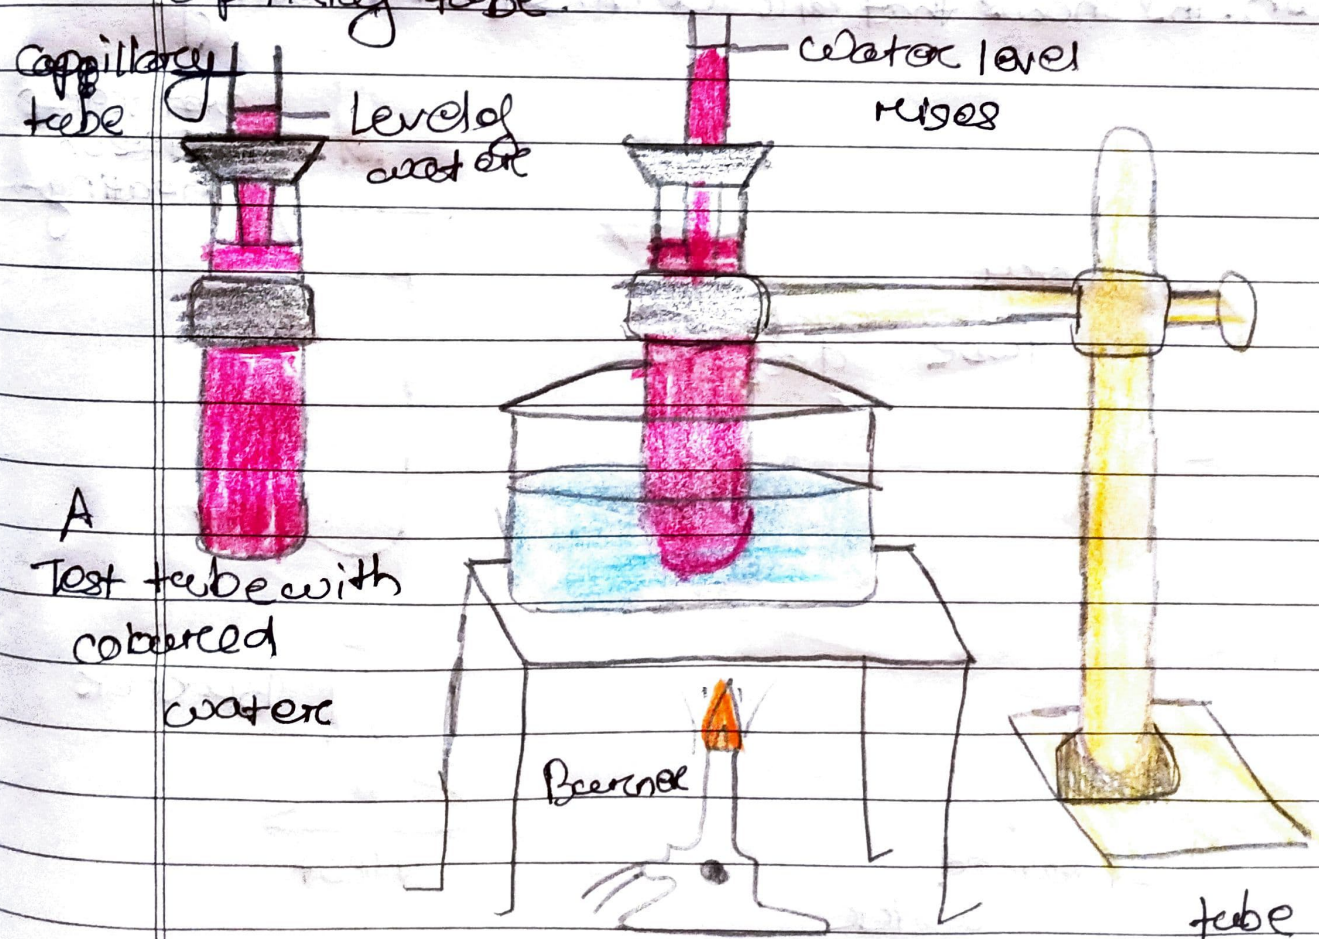 tube.
Cappillary
tube
Level of
water
Water level
rises
A
Test tube with
coloured
water
Burner
tube